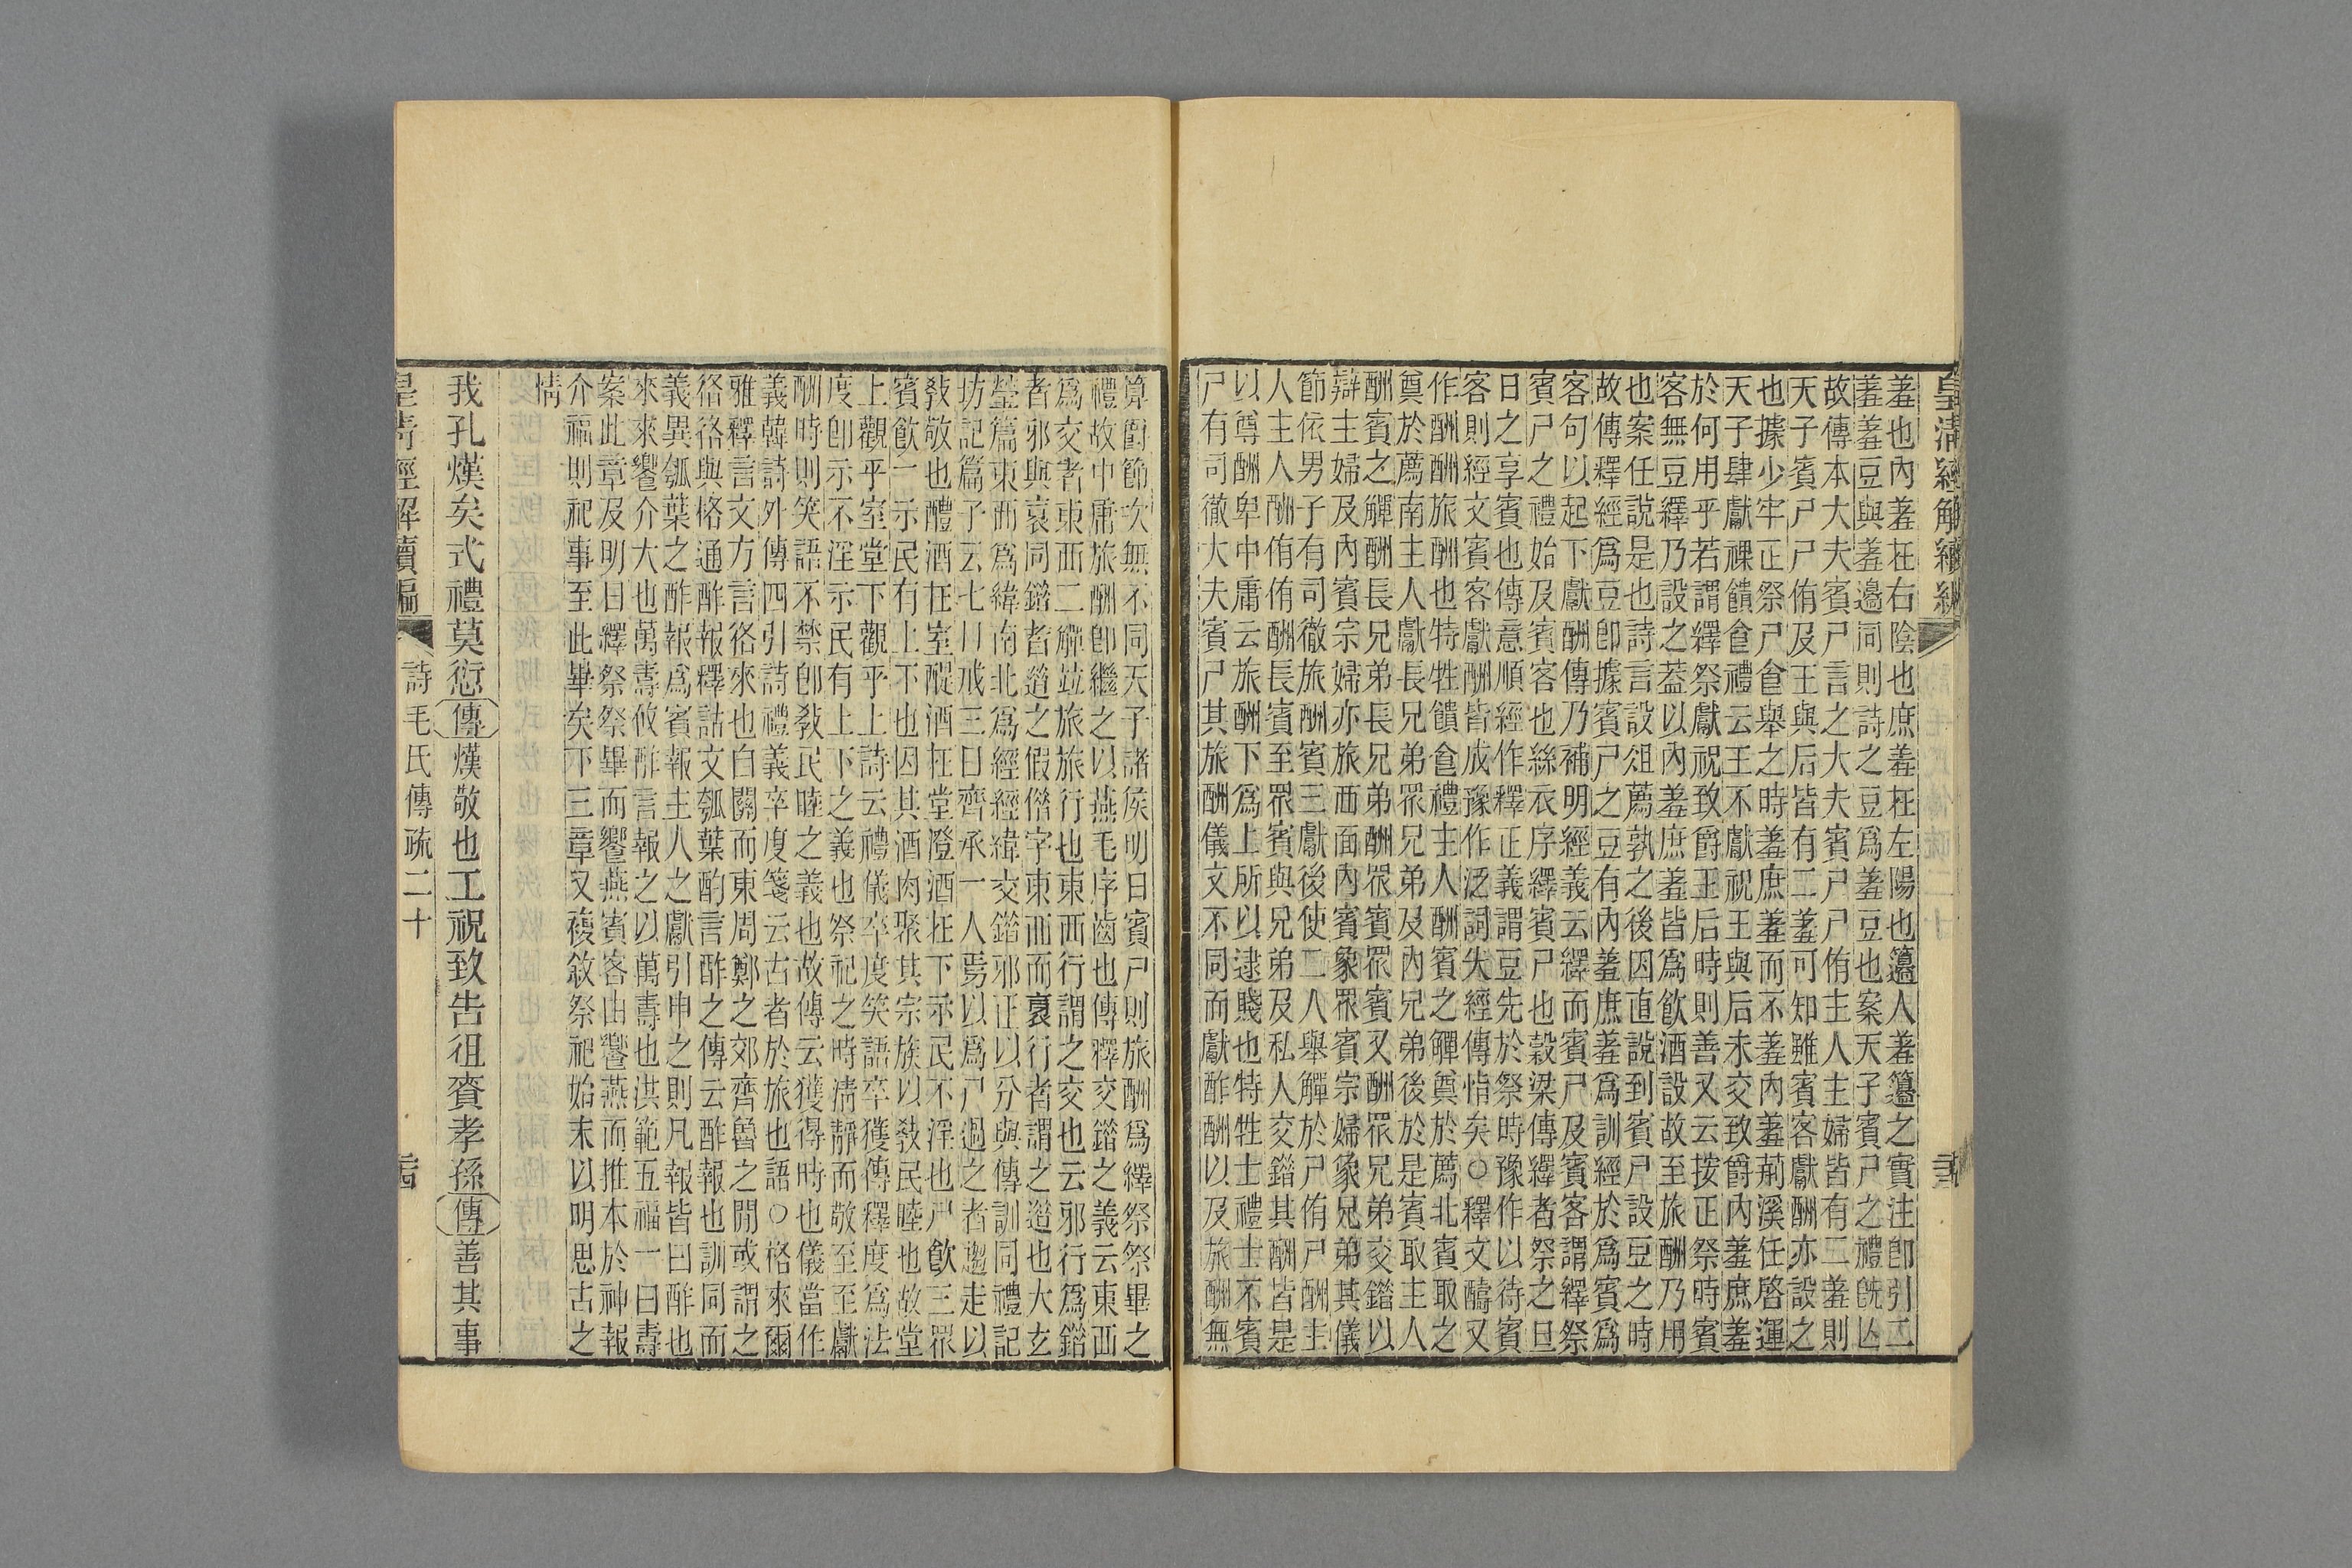 皇清經解續編
羞也內羞在右陰也庶羞在左陽也籩人羞籩之實注卽引二
羞羞豆與羞籩同則詩之豆爲羞豆也案天子賓尸之禮旣亾
故傳本大夫賓尸言之大夫賓尸尸侑主人主婦皆有二羞則
天子賓尸尸侑及王與后皆有二羞可知雖賓客獻酬亦設之
也據少牢正祭尸食舉之時羞庶羞而不羞內羞荊溪任啓運
天子肆獻祼饋食禮云王不獻祝王與后未交致爵內羞庶羞
於何用乎若謂繹祭獻祝致爵王后時則善又云按正祭時賓
客無豆繹乃設之葢以內羞庶羞皆爲飮酒設故至旅酬乃用
也案任說是也詩言設俎薦孰之後因直說到賓尸設豆之時
故傳釋經爲豆卽據賓尸之豆有內羞庶羞爲訓經於爲賓爲
客句以起下獻酬傳乃補明經義云繹而賓尸及賓客謂繹祭
賓尸之禮始及賓客也絲衣序繹賓尸也穀梁傳繹者祭之旦
日之享賓也傳意順經作釋正義謂豆先於祭時豫作以待賓
客則經文賓客獻酬皆成豫作泛詞失經傳恉矣○釋文醻又
作酬酬旅酬也特牲饋食禮主人酬賓之觶奠於薦北賓取之
奠於薦南主人獻長兄弟眾兄弟及內兄弟後於是賓取主人
酬賓之觶酬長兄弟長兄弟酬眾賓眾賓又酬眾兄弟交錯以
辯主婦及內賓宗婦亦旅西面內賓象眾賓宗婦象兄弟其儀
節依男子有司徹旅酬賓三獻後使二人舉觶於尸侑尸酬主
人主人酬侑侑酬長賓至眾賓與兄弟及私人交錯其酬皆是
以尊酬卑中庸云旅酬下爲上所以逮賤也特牲士禮士不賓
尸有司徹大夫賓尸其旅酬儀文不同而獻酢酬以及旅酬無
算爵節次無不同天子諸侯明日賓尸則旅酬爲繹祭祭畢之
禮故中庸旅酬卽繼之以燕毛序齒也傳釋交錯之義云東西
爲交者東西二觶竝旅旅行也東西行謂之交也云邪行爲錯
者邪與衺同錯者䢒之假借字東西而衺行者謂之䢒也大玄
瑩篇東西爲緯南北爲經經緯交錯邪正以分與傳訓同禮記
坊記篇子云七日戒三日齊承一人焉以爲尸過之者趨走以
敎敬也醴酒在室醍酒在堂澄酒在下示民不淫也尸飮三眾
賓飮一示民有上下也因其酒肉聚其宗族以敎民睦也故堂
上觀乎室堂下觀乎上詩云禮儀卒度笑語卒獲傳釋度爲法
度卽示不淫示民有上下之義也祭祀之時淸靜而敬至至獻
酬時則笑語不禁卽敎民睦之義也故傳云獲得時也儀當作
義韓詩外傳四引詩禮義卒度箋云古者於旅也語○格來爾
雅釋言文方言㣟來也自關而東周鄭之郊齊魯之閒或謂之
㣟㣟與格通酢報釋詁文瓠葉酌言酢之傳云酢報也訓同而
義異瓠葉之酢報爲賓報主人之獻引申之則凡報皆曰酢也
來來饗介大也萬壽攸酢言報之以萬壽也洪範五福一曰壽
案此章及明日繹祭祭畢而饗燕賓客由饗燕而推本於神報
介福則祀事至此畢矣下三章又複敘祭祀始末以明思古之
情
我孔熯矣式禮莫愆傳熯敬也工祝致告徂賚孝孫傳善其事
皇清經解續編 詩毛氏傳疏二十